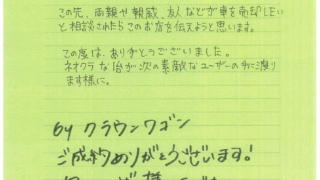 この先、両親や親戚、友人などが車を売却したい
と相談されたらこのお店を伝えようと思います。
この度は、ありがとうございました。
ネオクラな1台が次の素敵なユーザーの手に渡り
ます様に。
by クラウンワゴン
ご成約ありがとうございます!